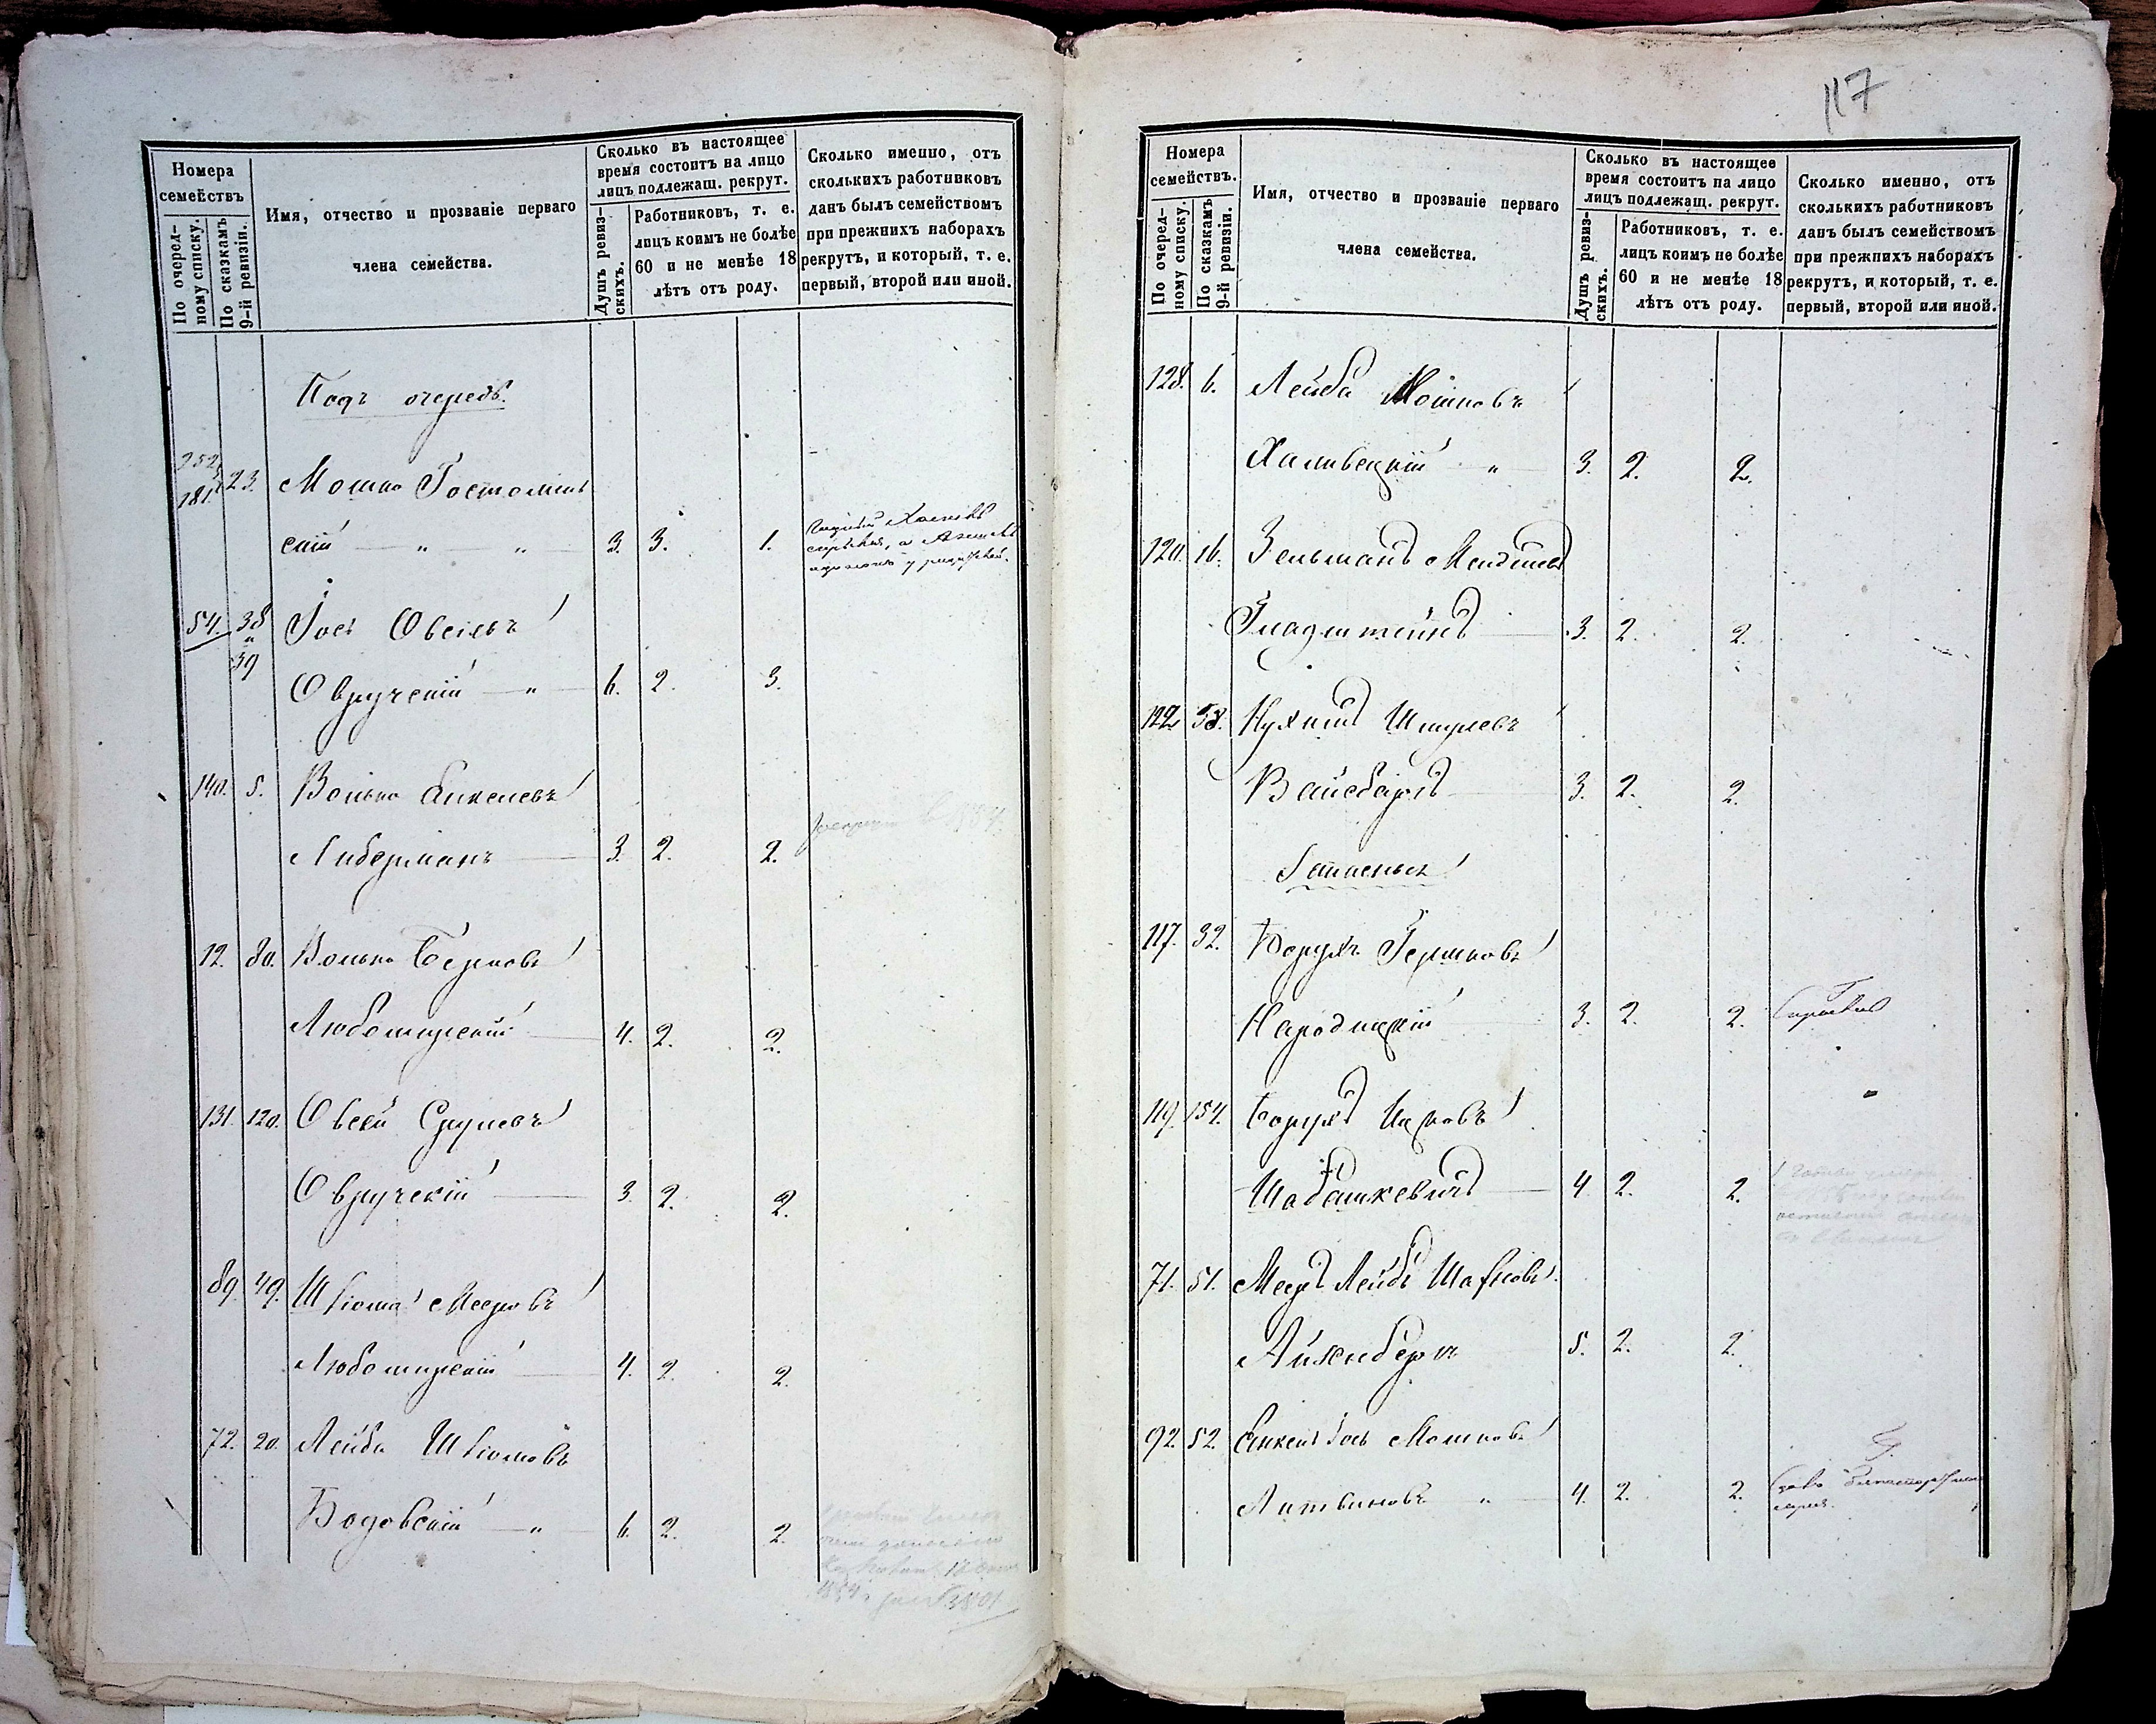 Номера семействъ
По очередному списку.
По сказкамъ 9-й ревизіи.
Имя, отчество и прозваніе перваго члена семейства.
Сколько въ настоящее время состоитъ на лицо лицъ подлежащ. рекрут.
Душъ ревизскихъ.
Работниковъ, т. е. лицъ коимъ не болѣе 60 и не менѣе 18 лѣтъ отъ роду.
Сколько именно, отъ сколькихъ работниковъ данъ былъ семействомъ при прежнихъ наборахъ рекрутъ, и который, т. е. первый, второй или иной.
Подъ очередь.
252
181 23. Мошко Гостомель
скій — „ — „ — 3. 3. 1.
54. 38 Іось Овсіевъ
и
39
Овручскій — „ — 6. 2. 3.
140. 5. Волько Янкелевъ
Либерманъ — 3. 2. 2.
12. 80. Волько Берковъ
Любомирскій — 4. 2. 2.
131. 120. Овсей Срулевъ
Овручскій — 3. 2. 2.
89. 49. Шліома Мееровъ
Любомирскій — 4. 2. 2.
72. 20. Лейба Шліомовъ
Бодовскій — „ — 6. 2. 2.
117
Номера семействъ.
По очередному списку.
По сказкамъ 9-й ревизіи.
Имя, отчество и прозваніе перваго члена семейства.
Сколько въ настоящее время состоитъ на лицо лицъ подлежащ. рекрут.
Душъ ревизскихъ.
Работниковъ, т. е. лицъ коимъ не болѣе 60 и не менѣе 18 лѣтъ отъ роду.
Сколько именно, отъ сколькихъ работниковъ данъ былъ семействомъ при прежнихъ наборахъ рекрутъ, и который, т. е. первый, второй или иной.
128. 6. Лейба Мошковъ
„ — 3. 2. 2.
120. 16. Зельманъ Менделевъ
Гладштейнъ — 3. 2. 2.
122. 58. Нухимъ Шмулевъ
Вайсбардъ — 3. 2. 2.
117. 32. Борухъ Гершковъ
Народицкій — 3. 2. 2.
119. 154. Борухъ Ицковъ
Шабашкевичъ — 4. 2. 2.
71. 51. Мееръ Лейбъ
Айзенбергъ 5. 2. 2.
92. 52. Янкель Іось Мошковъ
Литвиновъ „ — 4. 2. 2.